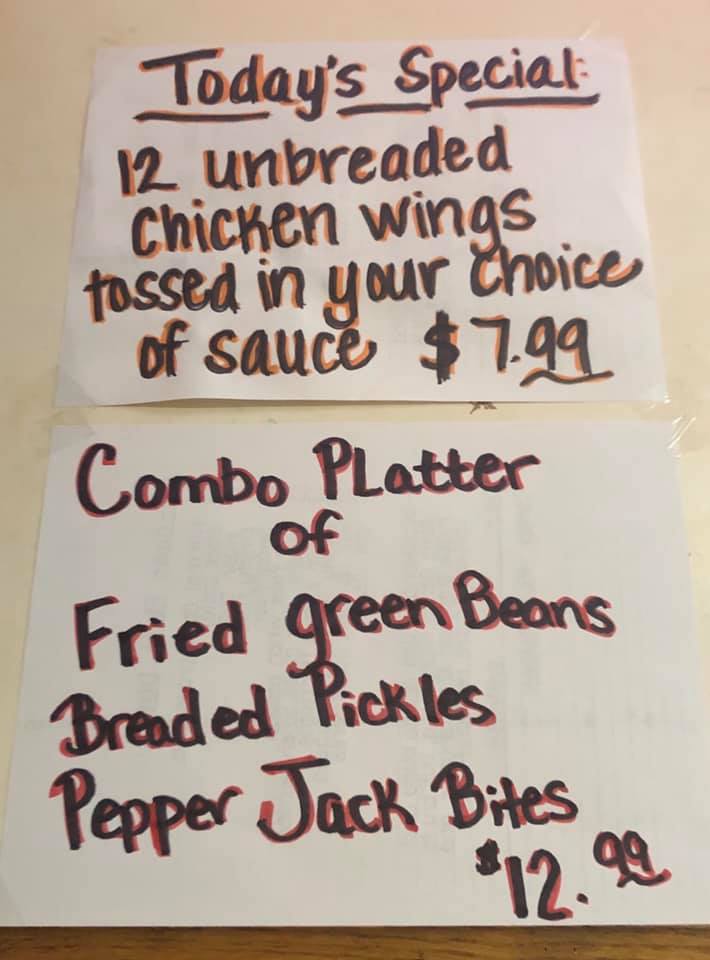 Today's Special:
12 unbreaded
chicken wings
tossed in your choice
of sauce $7.99
Combo PLatter
of
Fried green Beans
Breaded Pickles
Pepper Jack Bites
$12.99